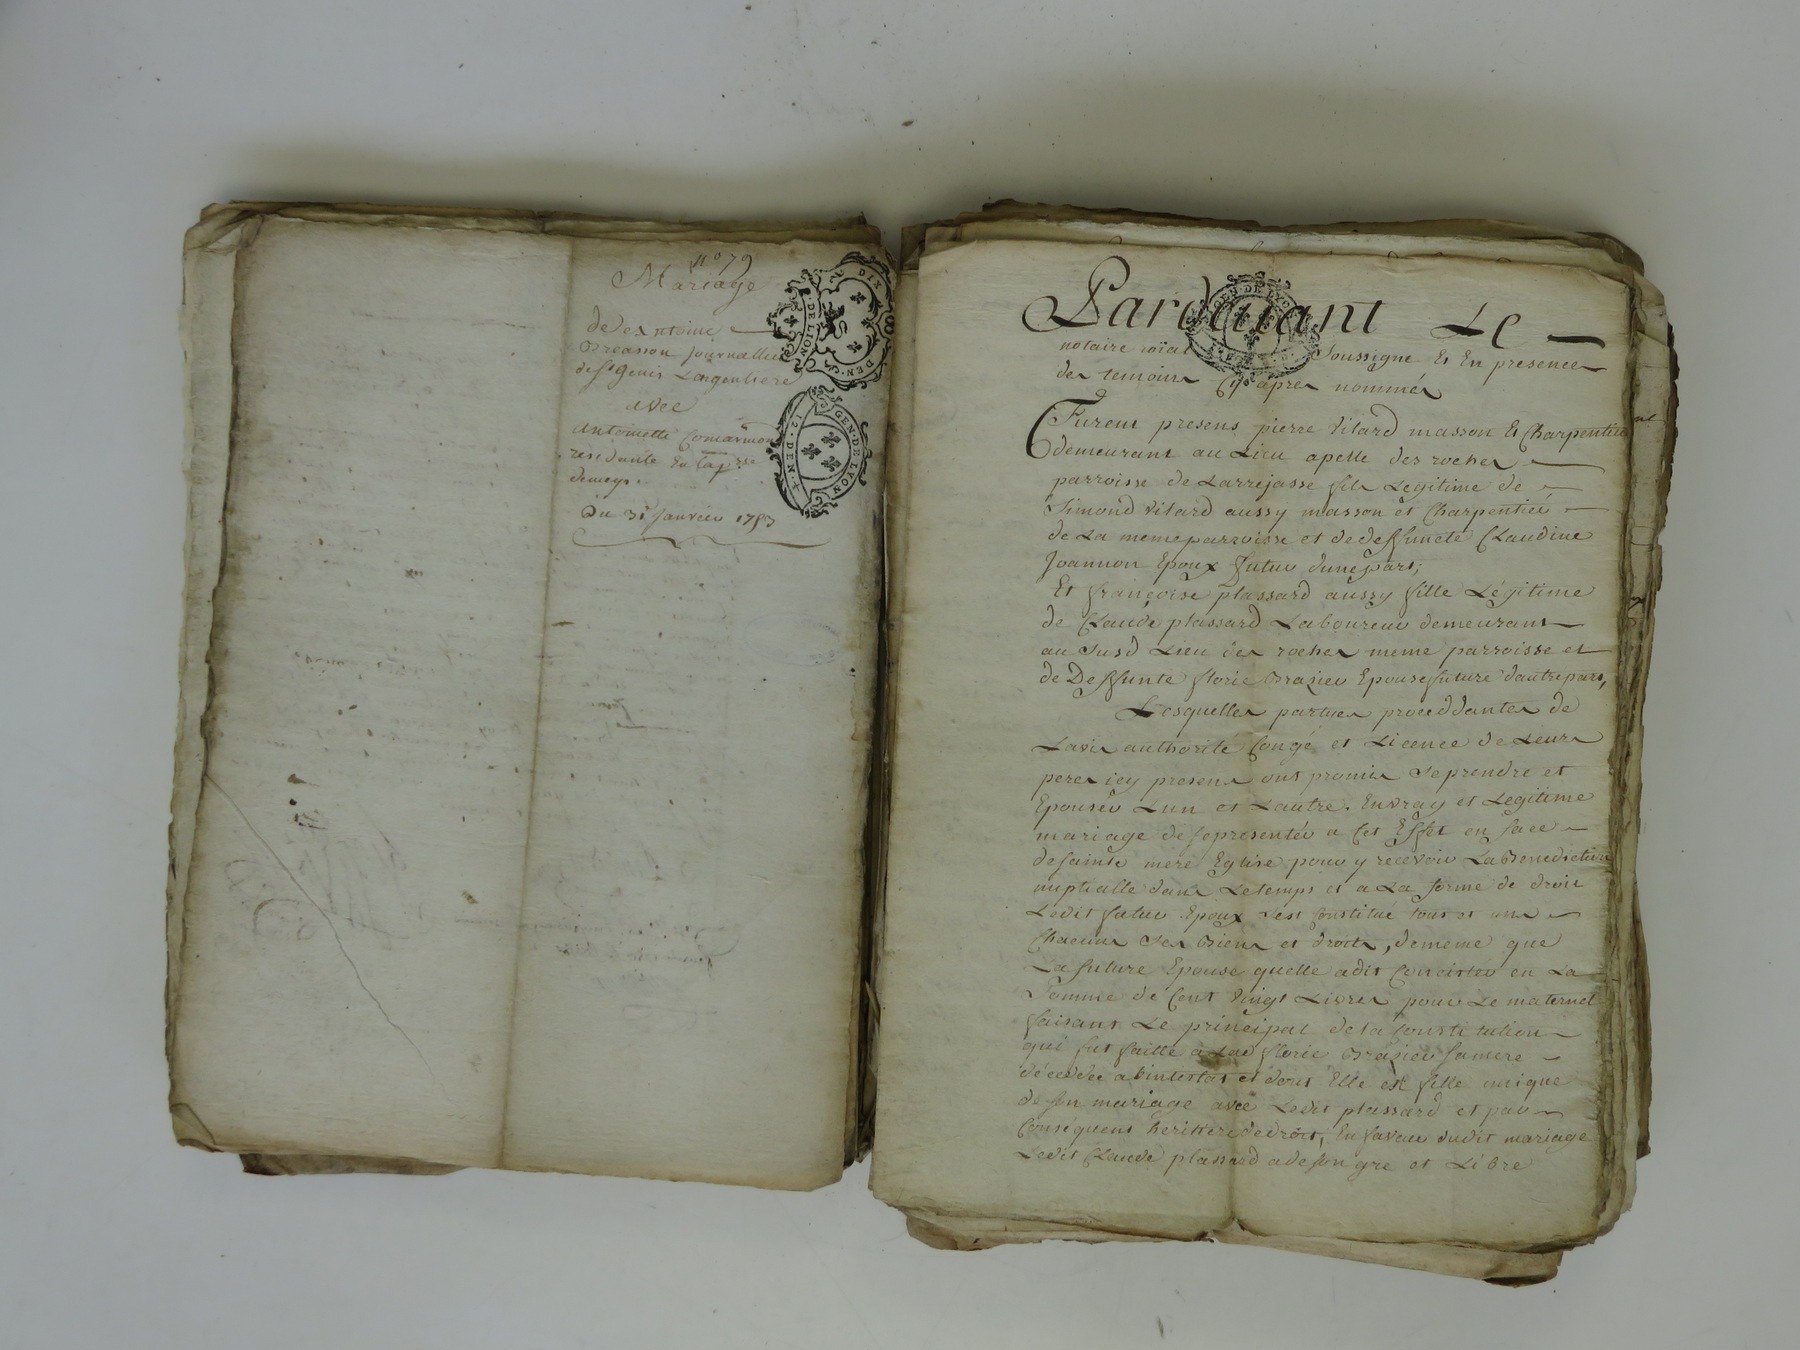 n° 79
Mariage
de antoine
Breasson journallier
de st Genis Largentiere
avec
antoinette Comarmond
residante en la
demeys.
Du 31 janvier 1783
DIX DEN.
DE LION
GEN. DE LYON
12. DEN.
GEN. DE LYON
Pardevant Le
notaire roïal soussigné Et En presence
des temoins Cy apres nommés
Furent presens pierre vilard masson Et Charpentier
demeurant au Lieu apellé des roches
parroisse de Larrejasse fils Legitime de
Simond vilard aussy masson et Charpentier
de La meme parroisse et de deffuncte CLaudine
Joannon Epoux futur dunepart;
Et françoise plassard aussy fille Légitime
de CLaude plassard Laboureur demeurant
au susd Lieu des roches meme parroisse et
de Deffunte florie Brazier Epouse future dautrepart,
Lesquelles partyes proceddantes de
Lavis authorité Congé et Licence de Leurs
peres icy presens ont promis se prendre et
Epouser Lun et Lautre. En vray et Legitime
mariage de se presenter a Cet Effet en face
de sainte mere Eglise pour y recevoir La Benediction
nuptialle dans Le temps et a La forme de droit
Ledit futur Epoux sest Constitué tous et uns
Chacuns ses Biens et droits, de meme que
La future Epouse quelle a dit Concister en La
somme de Cent vingt Livres pour Le maternel
faisant Le principal de la Constitution
qui fut faitte a Lad florie Brazier sa mere
décedée abintestat et dont Elle est fille unique
de son mariage avec Ledit plassard et par
Consequent heritiere de droit, En faveur dudit mariage
Ledit CLaude plassard a de son gre et Libre